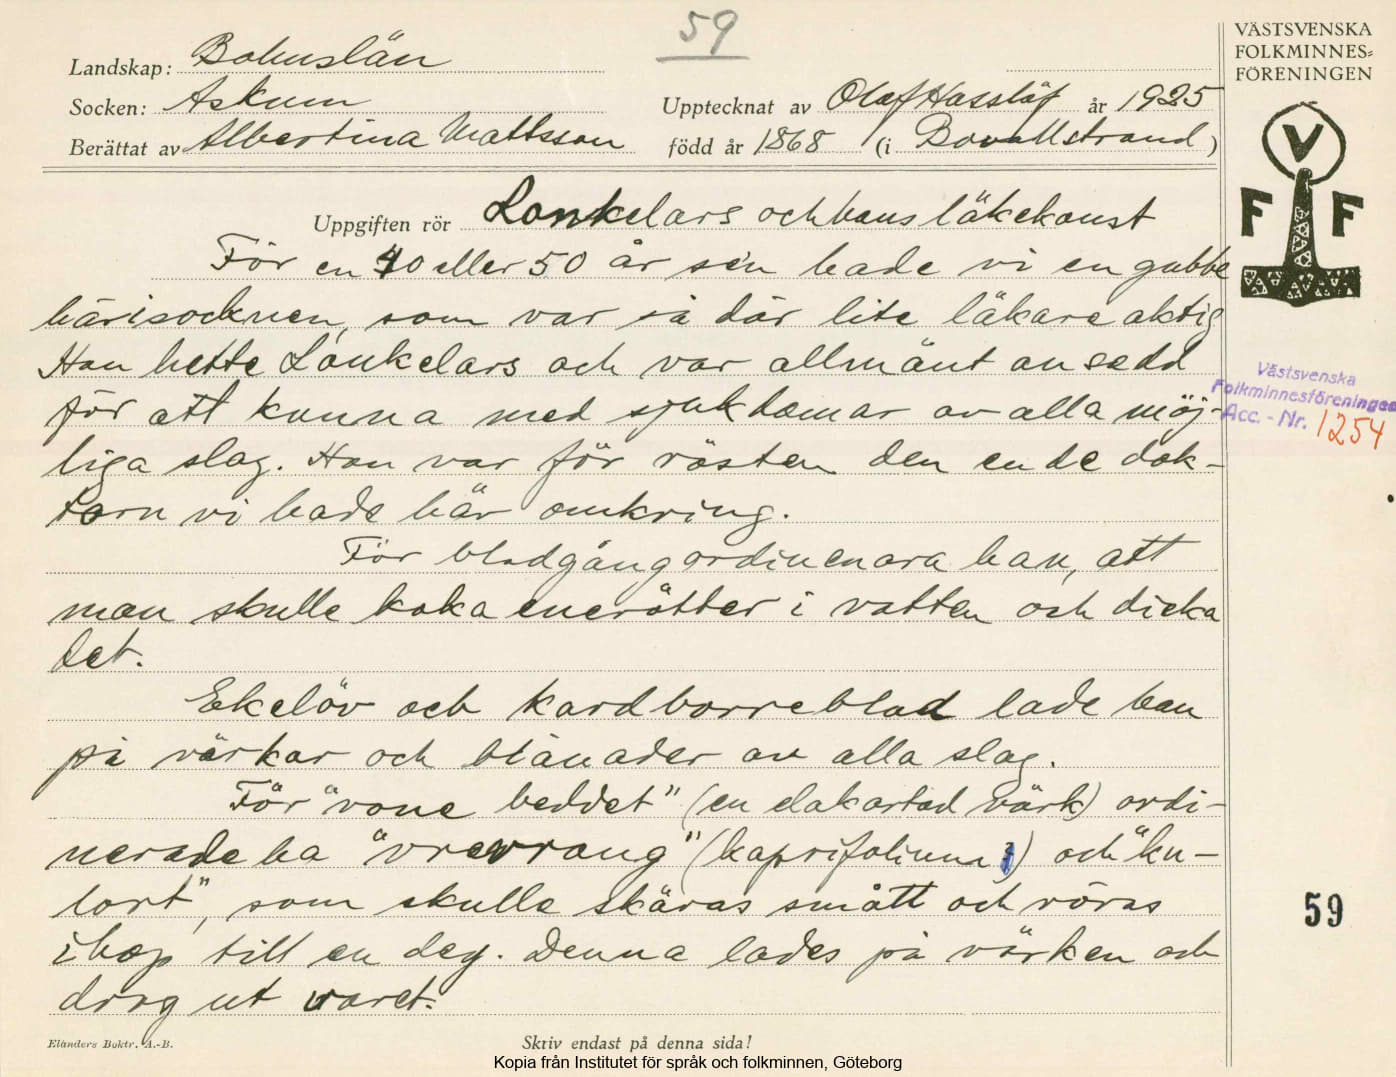 59
VÄSTSVENSKA
FOLKMINNES=
FÖRENINGEN
Landskap: Bohuslän
Socken: Askum
Upptecknat av Olof Hasslöf år 1925
Berättat av Albertina Mattsson
född år 1868 (i Bovallstrand)
V
F F
Uppgiften rör Lonkelars och hans läkekonst
För en 40 eller 50 år sen hade vi en gubbe
här i socknen, som var så där lite läkareaktig
Han hette Lonkelars och var allmänt ansedd
för att kunna med sjukdomar av alla möj-
liga slag. Han var för rästen den ende dok-
torn vi hade här omkring.
För blodgång ordinenara han, att
man skulle koka enerötter i vatten och dicka
det.
Ekelöv och kardborreblad lade han
på värkar och blånader av alla slag.
För "vone beddet" (en elakartad värk) ordi-
nerade ha "vrevrang" (kaprifolium ?) och "ku-
lort", som skulle skäras smått och röras
ihop till en deg. Denna lades på värken och
drog ut varet.
Västsvenska
Folkminnesföreningen
Acc. - Nr. 1254
59
Elanders Boktr. A.-B.
Skriv endast på denna sida!
Kopia från Institutet för språk och folkminnen, Göteborg